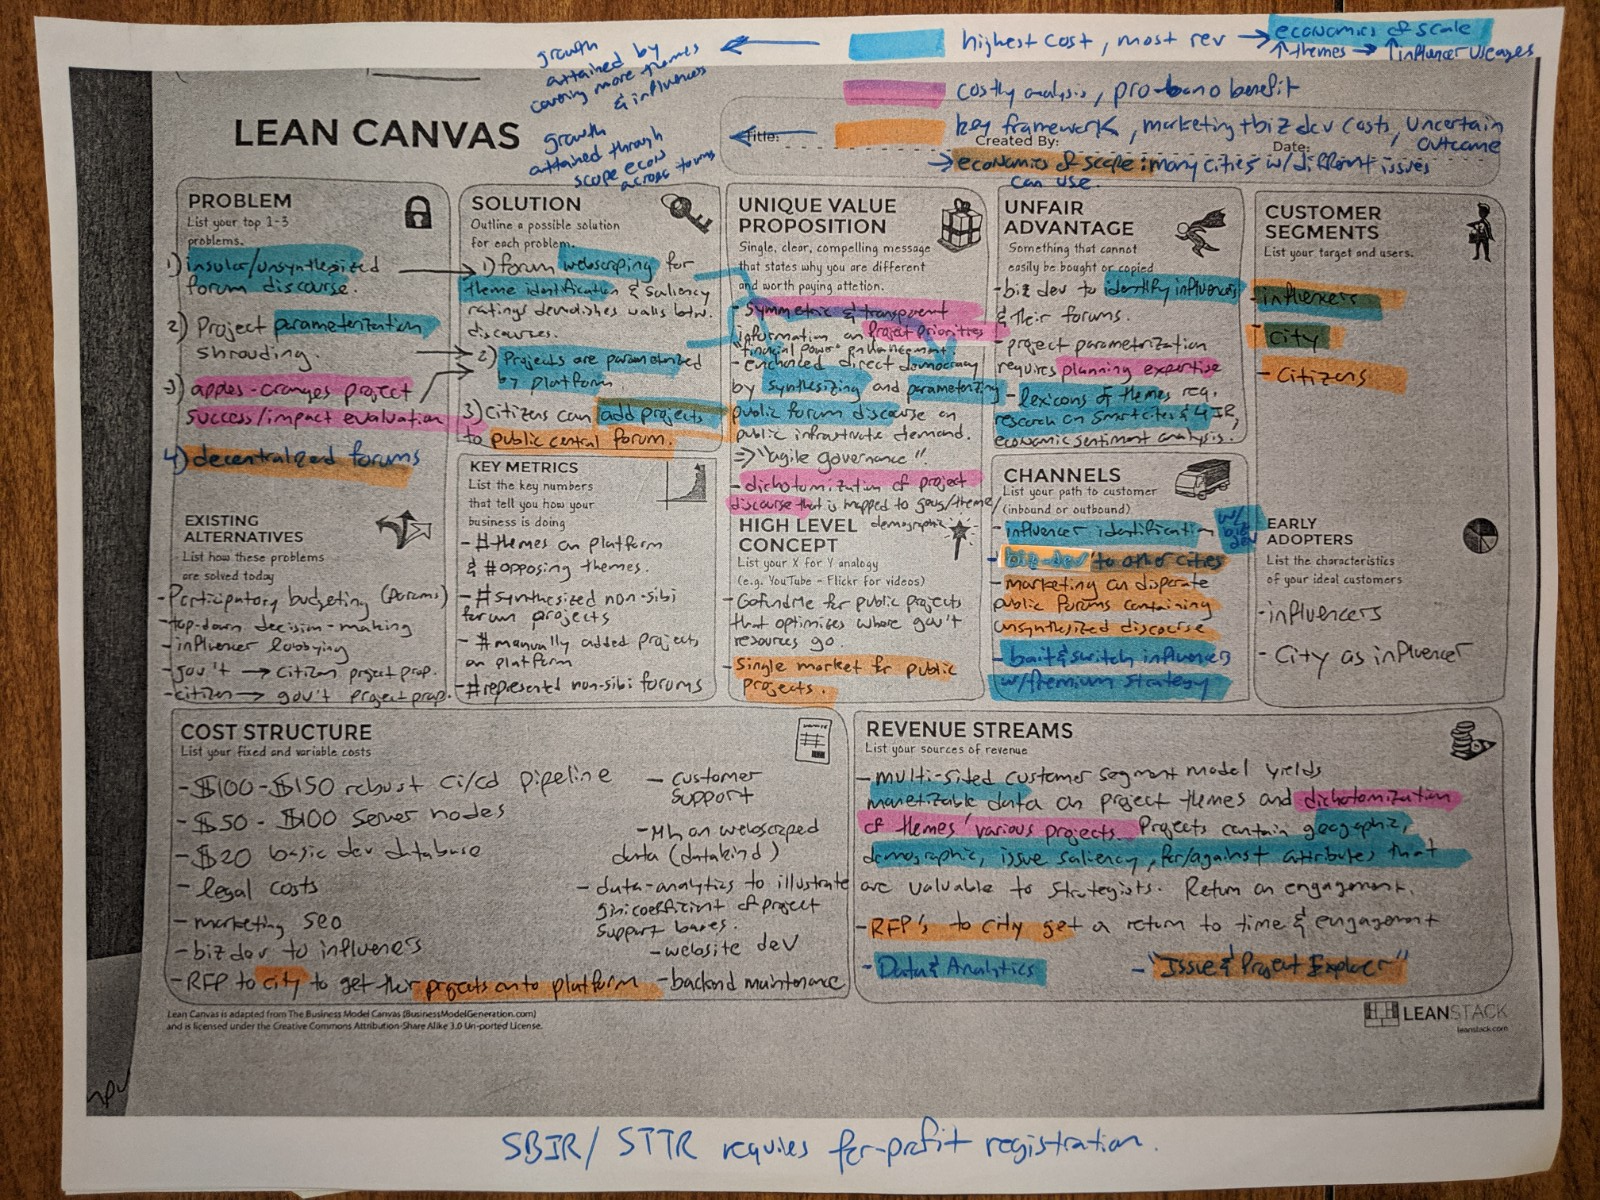 growth
attained by
covering more themes
& influencers
← highest cost, most rev → economics of scale
↑ themes → ↑ influencer useages
costly analysis, pro-bono benefit
← key framework, marketing + biz dev costs, uncertain
outcome
→ economics of scope: many cities w/ different issues
can use.
growth
attained through
scope econ
across
LEAN CANVAS
Title:
Created By:
Date:
PROBLEM
List your top 1-3
problems.
1) insular/unsynthesized
forum discourse.
2) Project parameterization
shrouding.
3) apples-oranges project
success/impact evaluation
4) decentralized forums
EXISTING
ALTERNATIVES
List how these problems
are solved today
- Participatory budgeting (forums)
- top-down decision-making
- influencer lobbying
- gov't → citizen project prop.
- citizen → gov't project prop.
SOLUTION
Outline a possible solution
for each problem.
1) forum webscraping for
theme identification & saliency
ratings demolishes walls btw.
discourses.
2) Projects are parametrized
by platform
3) Citizens can add projects
to public central forum.
KEY METRICS
List the key numbers
that tell you how your
business is doing
- # themes on platform
& # opposing themes.
- # synthesized non-sibi
forum projects
- # manually added projects
on platform
- # represented non-sibi forums
UNIQUE VALUE
PROPOSITION
Single, clear, compelling message
that states why you are different
and worth paying attetion.
- Symmetric & transparent
information on Project Priorities
"financial power" enhancement
- enhanced direct democracy
by synthesizing and parameterizing
public forum discourse on
public infrastrute demand.
⇒ "agile governance".
- dichotomization of project
discourse that is mapped to geog/theme/
demographic
HIGH LEVEL
CONCEPT
List your X for Y analogy
(e.g. YouTube - Flickr for videos)
- Gofundme for public projects
that optimises where gov't
resources go.
- Single market for public
projects.
UNFAIR
ADVANTAGE
Something that cannot
easily be bought or copied
- biz dev to identify influencers
& their forums.
- project parametrization
requires planning expertise
- lexicons of themes req.
research on Smartcities & 4IR,
economic sentiment analysis.
CHANNELS
List your path to customer
(inbound or outbound)
- influencer identification w/
biz dev
- biz-dev to other cities
- marketing on disparate
public forums containing
unsynthesized discourse
- bait & switch influencers
w/ premium strategy
CUSTOMER
SEGMENTS
List your target and users.
- influencers
- city
- Citizens
EARLY
ADOPTERS
List the characteristics
of your ideal customers
- influencers
- City as influencer
COST STRUCTURE
List your fixed and variable costs
- $100-$150 robust ci/cd pipeline
- $50 - $100 server nodes
- $20 basic dev database
- legal costs
- marketing SEO
- biz dev to influencers
- RFP to city to get their projects onto platform
- customer
support
- ML on webscraped
data (datakind)
- data-analytics to illustrate
gini coefficient of project
support bases.
- website dev
- backend maintenance
REVENUE STREAMS
List your sources of revenue
- multi-sided customer segment model yields
monetizable data on project themes and dichotomization
of themes' various projects. Projects contain geographic,
demographic, issue saliency, for/against attributes that
are valuable to strategists. Return on engagement.
- RFP's to city get a return to time & engagement
- Data & Analytics
- "Issue & Project Explorer"
Lean Canvas is adapted from The Business Model Canvas (BusinessModelGeneration.com)
and is licensed under the Creative Commons Attribution-Share Alike 3.0 Un-ported License.
LEANSTACK
leanstack.com
SBIR/STTR requires for-profit registration.